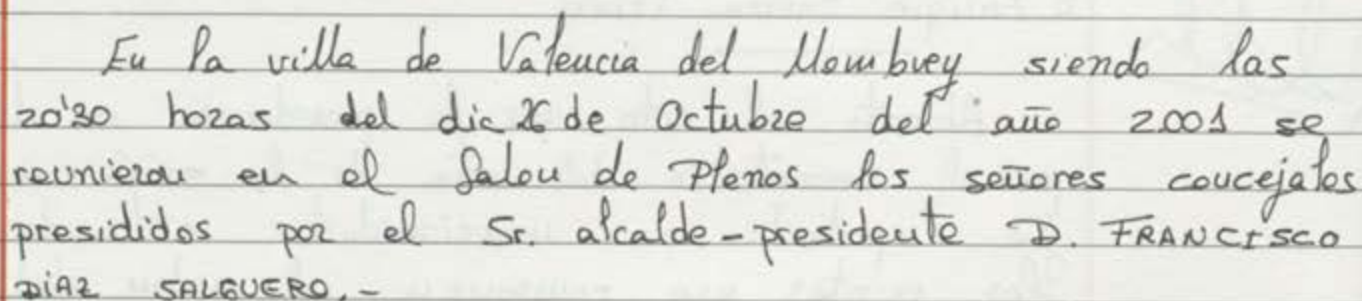 En la villa de Valencia del Mombuey siendo las
20'30 horas del dia de Octubre del año 2.001 se
reunieron en el Salon de Plenos los señores concejales
presididos por el Sr. alcalde-presidente D. FRANCISCO
DIAZ SALGUERO.-